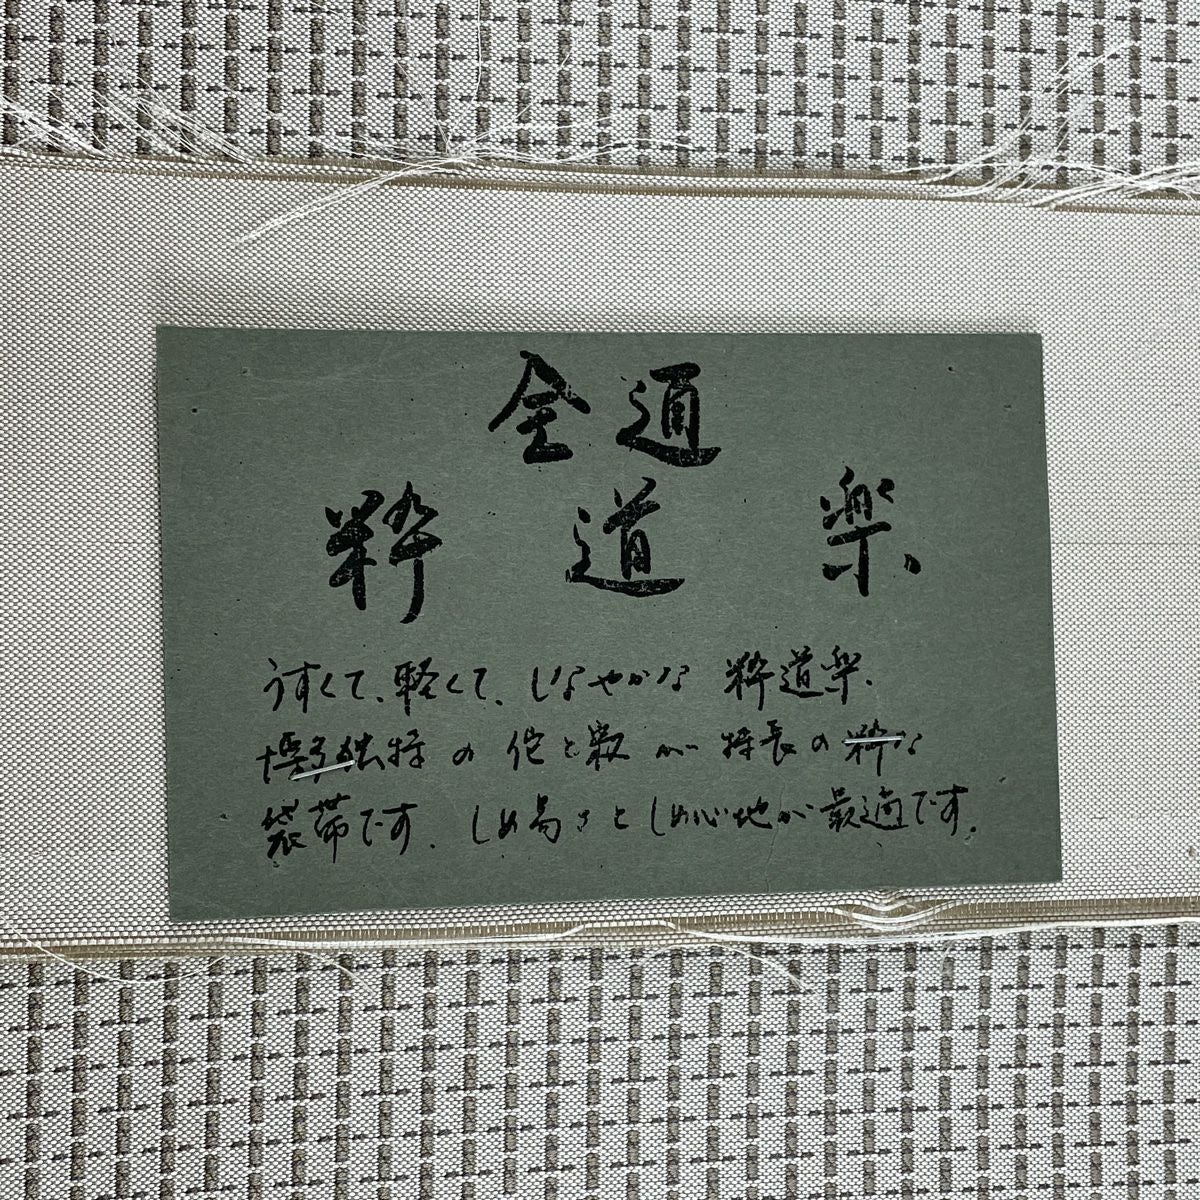 全通
粋道楽
うすくて、軽くて、しなやかな 粋道楽、
博多独特の 侘と寂が 特長の 粋な
袋帯です。しめ易さと しめ心地が 最適です。